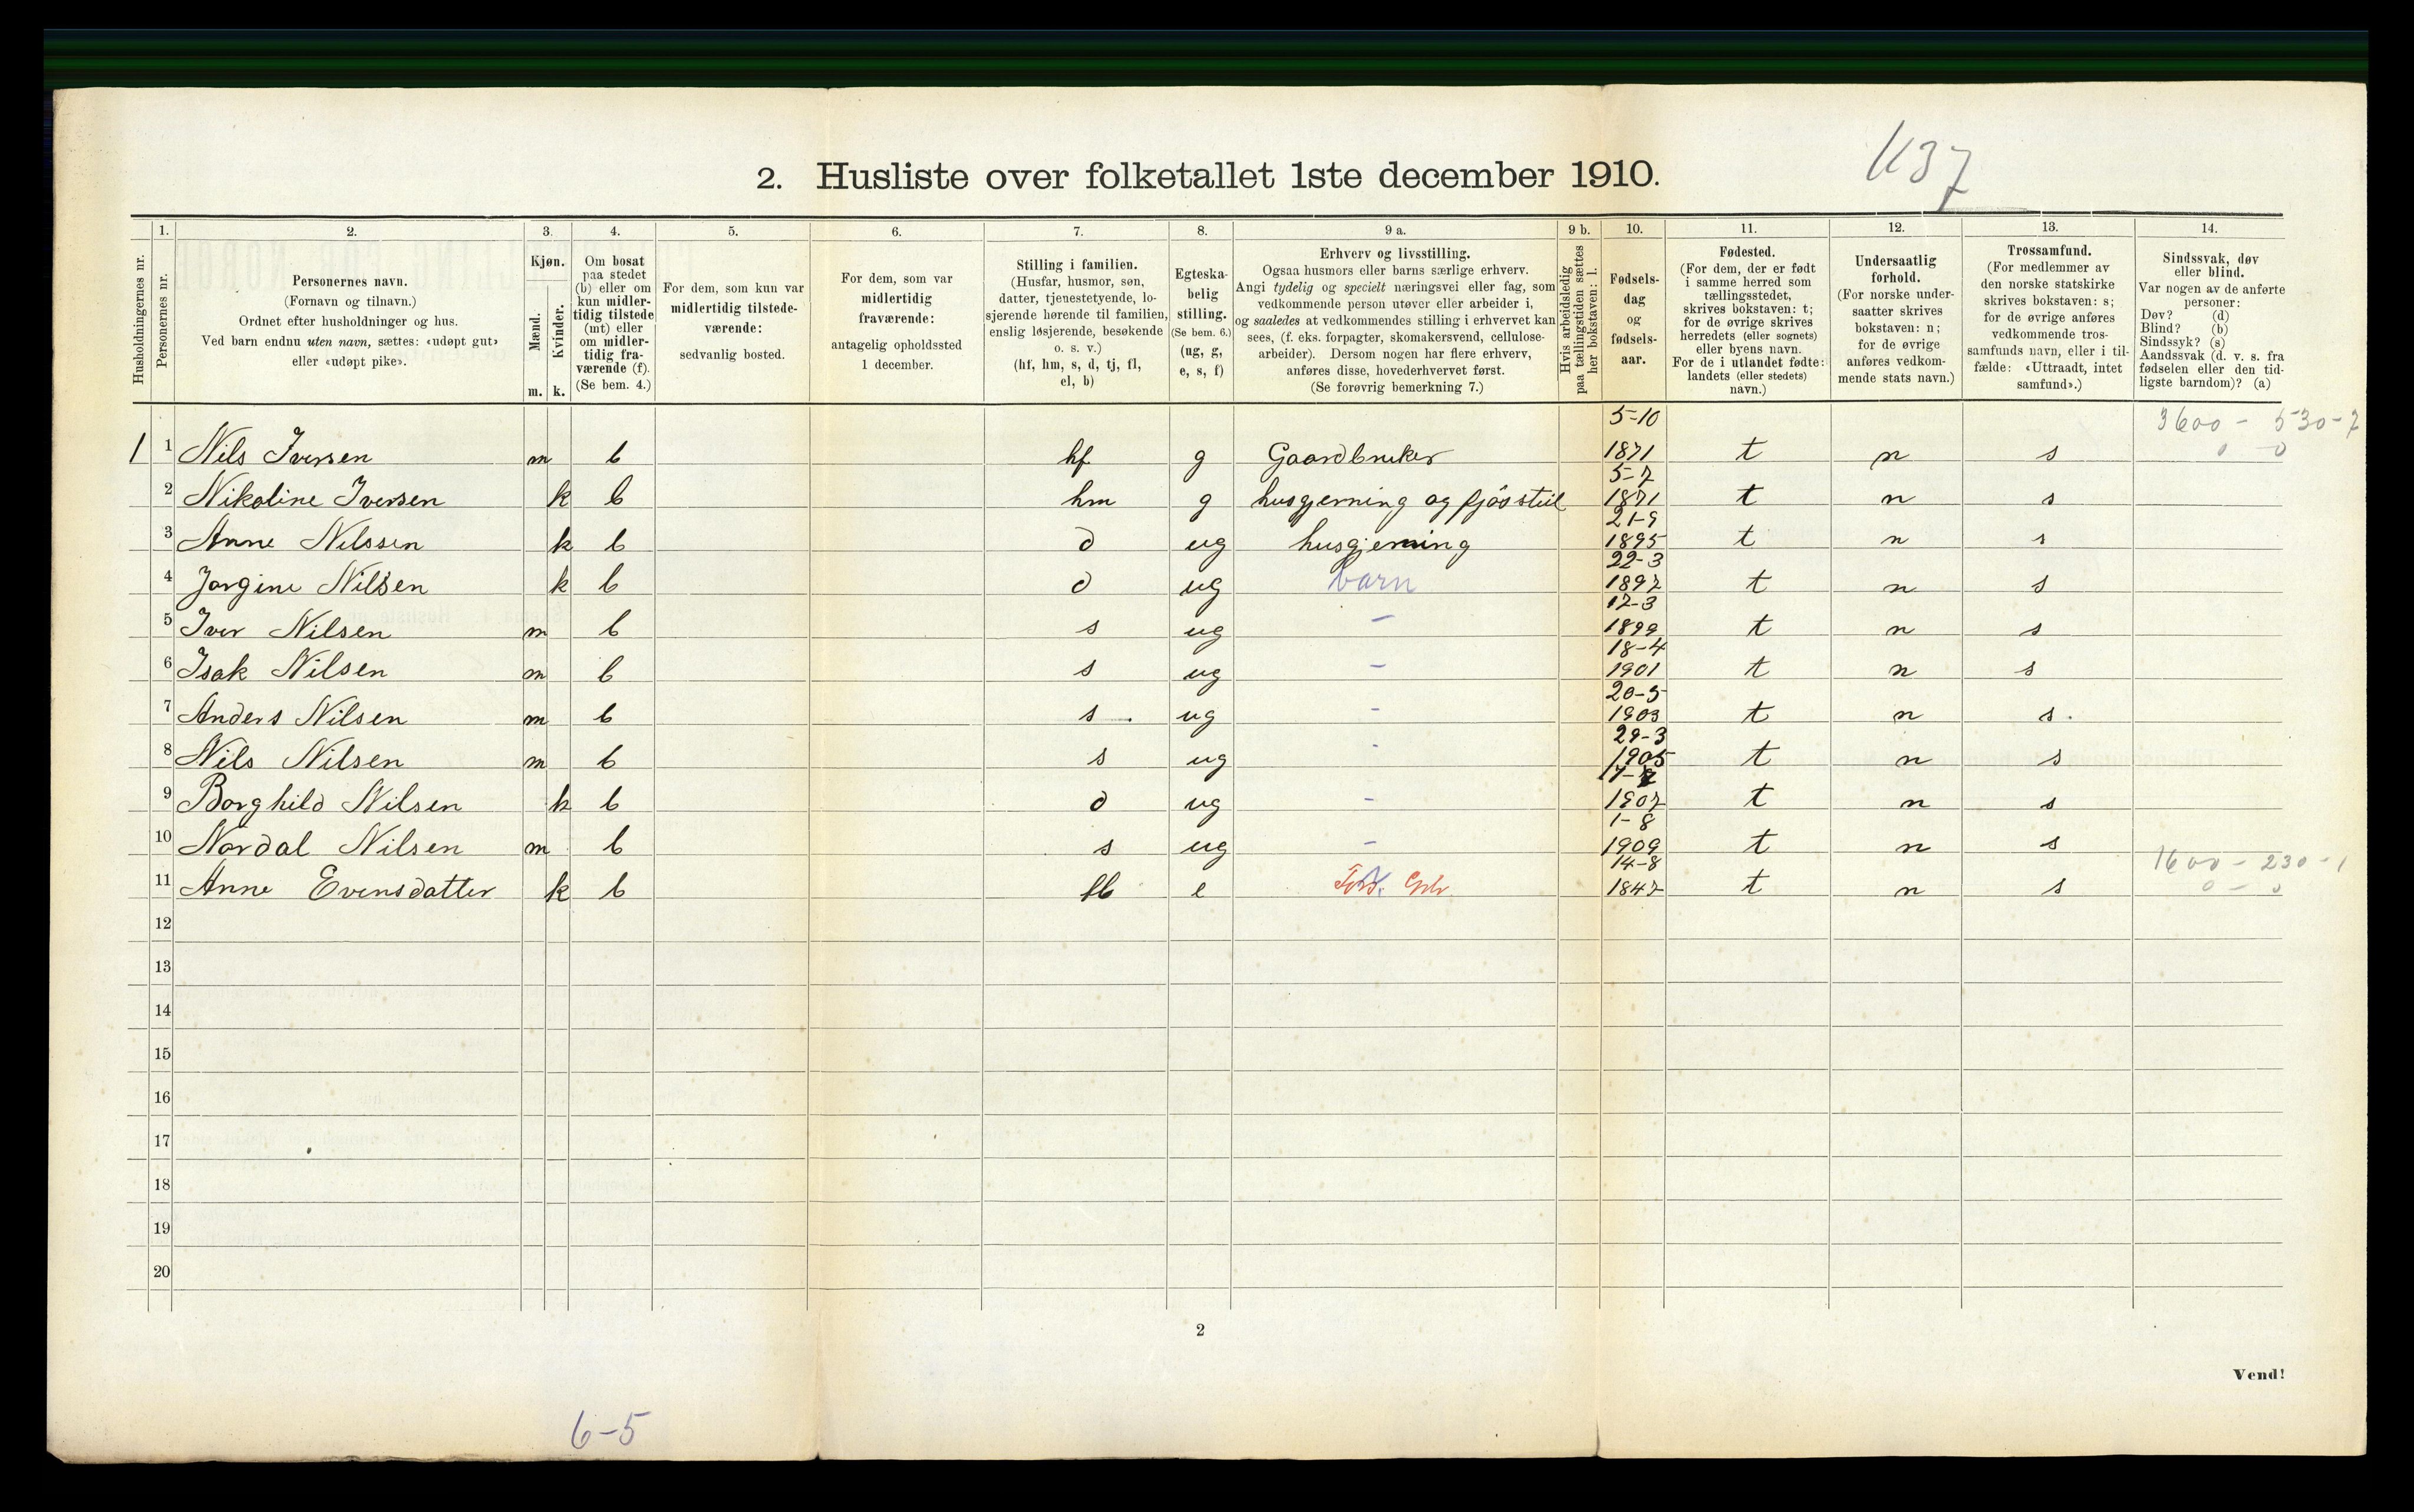 2. Husliste over folketallet 1ste december 1910.
1137
Husholdningernes nr.
1.
Personernes nr.
2.
Personernes navn.
(Fornavn og tilnavn.)
Ordnet efter husholdninger og hus.
Ved barn endnu uten navn, sættes: «udøpt gut»
eller «udøpt pike».
3.
Kjøn.
Mænd.
m.
Kvinder.
k.
4.
Om bosat
paa stedet
(b) eller om
kun midler-
tidig tilstede
(mt) eller
om midler-
tidig fra-
værende (f).
(Se bem. 4.)
5.
For dem, som kun var
midlertidig tilstede-
værende:
sedvanlig bosted.
6.
For dem, som var
midlertidig
fraværende:
antagelig opholdssted
1 december.
7.
Stilling i familien.
(Husfar, husmor, søn,
datter, tjenestetyende, lo-
sjerende hørende til familien,
enslig løsjerende, besøkende
o. s. v.)
(hf, hm, s, d, tj, fl,
el, b)
8.
Egteska-
belig
stilling.
(Se bem. 6.)
(ug, g,
e, s, f)
9 a.
Erhverv og livsstilling.
Ogsaa husmors eller barns særlige erhverv.
Angi tydelig og specielt næringsvei eller fag, som
vedkommende person utøver eller arbeider i,
og saaledes at vedkommendes stilling i erhvervet kan
sees, (f. eks. forpagter, skomakersvend, cellulose-
arbeider). Dersom nogen har flere erhverv,
anføres disse, hovederhvervet først.
(Se forøvrig bemerkning 7.)
9 b.
Hvis arbeidsledig
paa tællingstiden sættes
her bokstaven: l.
10.
Fødsels-
dag
og
fødsels-
aar.
11.
Fødested.
(For dem, der er født
i samme herred som
tællingsstedet,
skrives bokstaven: t;
for de øvrige skrives
herredets (eller sognets)
eller byens navn.
For de i utlandet fødte:
landets (eller stedets)
navn.)
12.
Undersaatlig
forhold.
(For norske under-
saatter skrives
bokstaven: n;
for de øvrige
anføres vedkom-
mende stats navn.)
13.
Trossamfund.
(For medlemmer av
den norske statskirke
skrives bokstaven: s;
for de øvrige anføres
vedkommende tros-
samfunds navn, eller i til-
fælde: «Uttraadt, intet
samfund».)
14.
Sindssvak, døv
eller blind.
Var nogen av de anførte
personer:
Døv? (d)
Blind? (b)
Sindssyk? (s)
Aandssvak (d. v. s. fra
fødselen eller den tid-
ligste barndom)? (a)
5-10 3600 - 530-7
1 1 Nils Iversen m b hf g Gaardbruker 1871 t n s 0 0
5-7
2 Nikoline Iversen k b hm g husgjerning og fjösstell 1871 t n s
21-9
3 Anne Nilssen k b d ug husgjerning 1895 t n s
22-3
4 Jorgine Nilsen k b d ug barn 1897 t n s
12-3
5 Iver Nilsen m b s ug - 1899 t n s
18-4
6 Isak Nilsen m b s ug - 1901 t n s
20-5
7 Anders Nilsen m b s ug - 1903 t n s
29-3
8 Nils Nilsen m b s ug - 1905 t n s
9 Borghild Nilsen k b d ug - 1907 t n s
1-8
10 Nordal Nilsen m b s ug - 1909 t n s
14-8 1600 - 230 - 1
11 Anne Evensdatter k b fl e 1847 t n s 0 - 0
12
13
14
15
16
17
18
19
20
2
Vend!
6-5